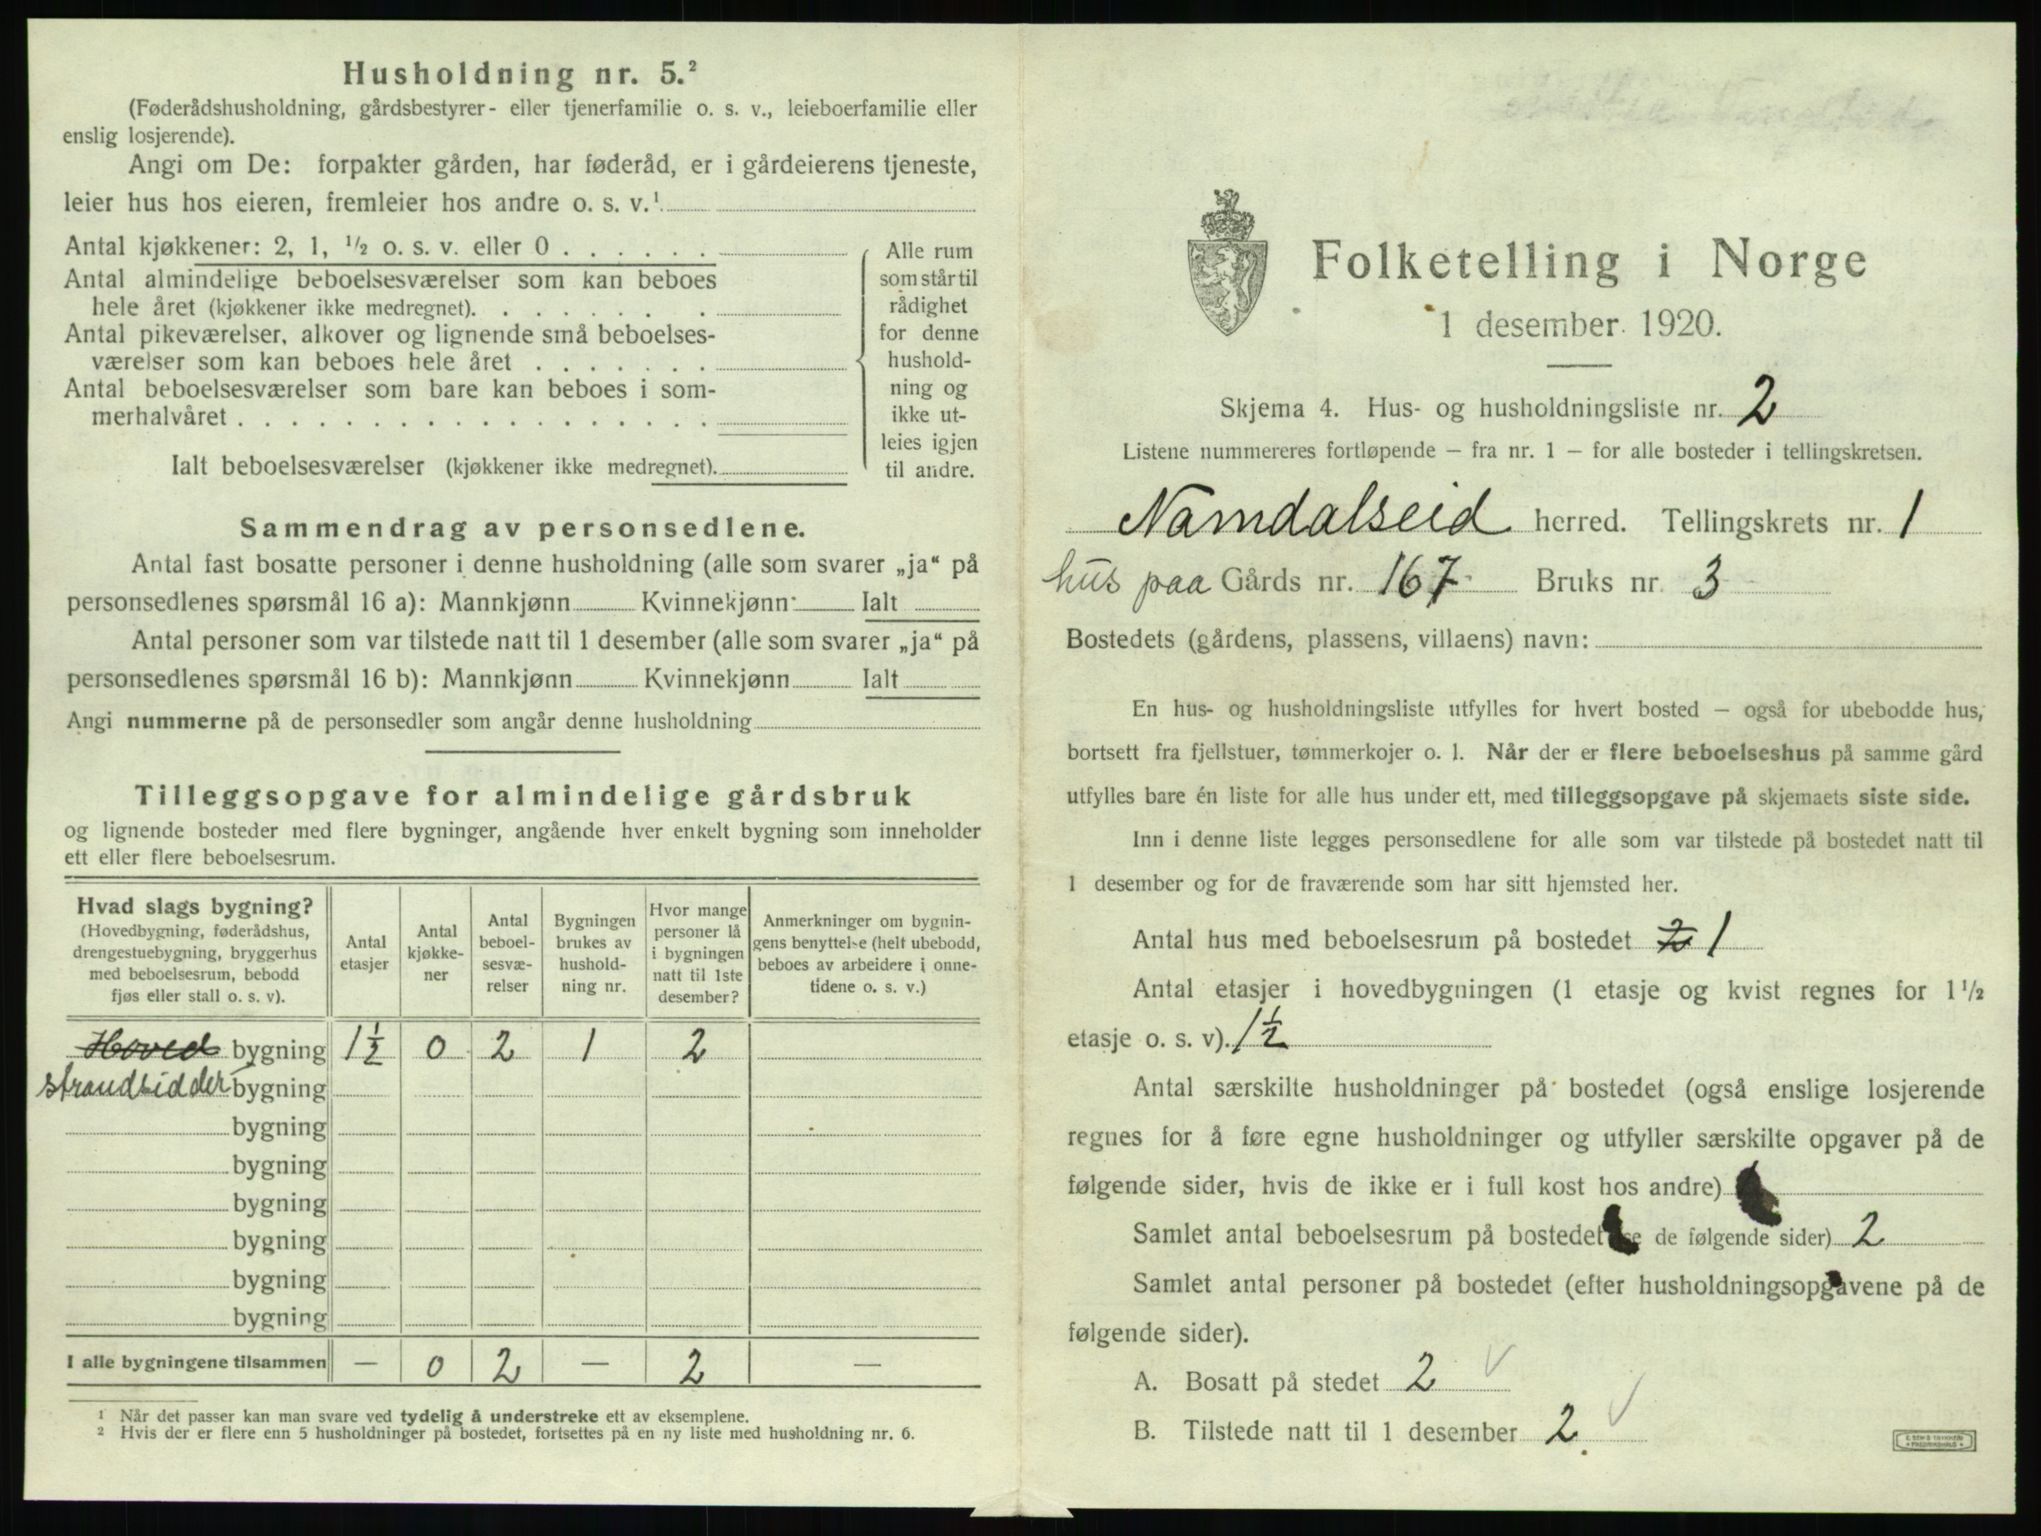 Husholdning nr. 5.²
(Føderådshusholdning, gårdsbestyrer- eller tjenerfamilie o. s. v., leieboerfamilie eller
enslig losjerende).
Angi om De: forpakter gården, har føderåd, er i gårdeierens tjeneste,
leier hus hos eieren, fremleier hos andre o. s. v.¹
Antal kjøkkener: 2, 1, ½ o. s. v. eller 0 . . . . . .
Antal almindelige beboelsesværelser som kan beboes
hele året (kjøkkener ikke medregnet). . . . . . . .
Antal pikeværelser, alkover og lignende små beboelses-
værelser som kan beboes hele året . . . . . . .
Antal beboelsesværelser som bare kan beboes i som-
merhalvåret . . . . . . . . . . . . . . . . . .
Ialt beboelsesværelser (kjøkkener ikke medregnet).
Alle rum
som står til
rådighet
for denne
hushold-
ning og
ikke ut-
leies igjen
til andre.
Sammendrag av personsedlene.
Antal fast bosatte personer i denne husholdning (alle som svarer „ja“ på
personsedlenes spørsmål 16 a): Mannkjønn Kvinnekjønn Ialt
Antal personer som var tilstede natt til 1 desember (alle som svarer „ja“ på
personsedlenes spørsmål 16 b): Mannkjønn Kvinnekjønn Ialt
Angi nummerne på de personsedler som angår denne husholdning
Tilleggsopgave for almindelige gårdsbruk
og lignende bosteder med flere bygninger, angående hver enkelt bygning som inneholder
ett eller flere beboelsesrum.
Hvad slags bygning?
(Hovedbygning, føderådshus,
drengestuebygning, bryggerhus
med beboelsesrum, bebodd
fjøs eller stall o. s. v).
Antal
etasjer
Antal
kjøkke-
ner
Antal
beboel-
sesvæ-
relser
Bygningen
brukes av
hushold-
ning nr.
Hvor mange
personer lå
i bygningen
natt til 1ste
desember?
Anmerkninger om bygnin-
gens benyttelse (helt ubebodd,
beboes av arbeidere i onne-
tidene o. s. v.)
Hoved bygning 1½ 0 2 1 2
strandsidder bygning
bygning
bygning
bygning
bygning
bygning
bygning
I alle bygningene tilsammen — 0 2 — 2 —
¹ Når det passer kan man svare ved tydelig å understreke ett av eksemplene.
² Hvis der er flere enn 5 husholdninger på bostedet, fortsettes på en ny liste med husholdning nr. 6.
Folketelling i Norge
1 desember 1920.
Skjema 4. Hus- og husholdningsliste nr. 2
Listene nummereres fortløpende — fra nr. 1 — for alle bosteder i tellingskretsen.
Namdalseid herred. Tellingskrets nr. 1
hus paa Gårds nr. 167 Bruks nr. 3
Bostedets (gårdens, plassens, villaens) navn:
En hus- og husholdningsliste utfylles for hvert bosted — også for ubebodde hus,
bortsett fra fjellstuer, tømmerkojer o. l. Når der er flere beboelseshus på samme gård
utfylles bare én liste for alle hus under ett, med tilleggsopgave på skjemaets siste side.
Inn i denne liste legges personsedlene for alle som var tilstede på bostedet natt til
1 desember og for de fraværende som har sitt hjemsted her.
Antal hus med beboelsesrum på bostedet 2 1
Antal etasjer i hovedbygningen (1 etasje og kvist regnes for 1½
etasje o. s. v). 1½
Antal særskilte husholdninger på bostedet (også enslige losjerende
regnes for å føre egne husholdninger og utfyller særskilte opgaver på de
følgende sider, hvis de ikke er i full kost hos andre)
Samlet antal beboelsesrum på bostedet (se de følgende sider) 2
Samlet antal personer på bostedet (efter husholdningsopgavene på de
følgende sider).
A. Bosatt på stedet 2
B. Tilstede natt til 1 desember 2